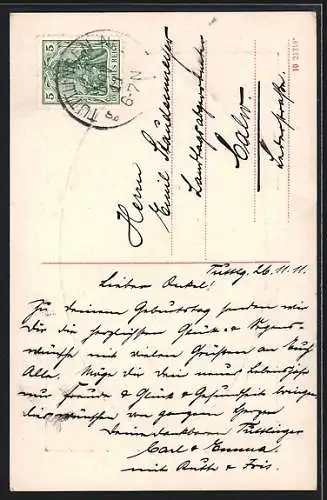 5 5
DEUTSCHES REICH
TUTTLINGEN
6-7 N
10 21318
Herrn
Emil Staudenmeyer
Landtagsabgeordneter
Calw
Lederstrasse.
Tuttlg. 26.11.11.
Lieber Onkel!
Zu deinem Geburtstag senden wir
dir die herzlichsten Glück- & Segens-
wünsche mit vielen Grüssen an Euch
Alle. Möge dir dein neues Lebensjahr
nur Freude & Glück & Gesundheit bringen,
dies wünschen von ganzem Herzen
Deine dankbaren Tuttlinger
Carl & Emma
mit Ruth & Fris.